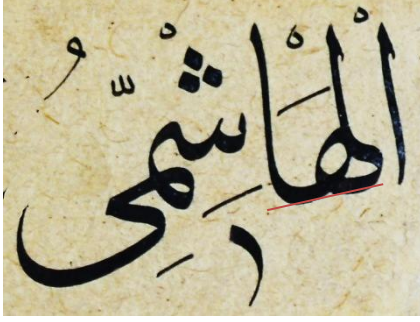 الهَاشِمِىُّ